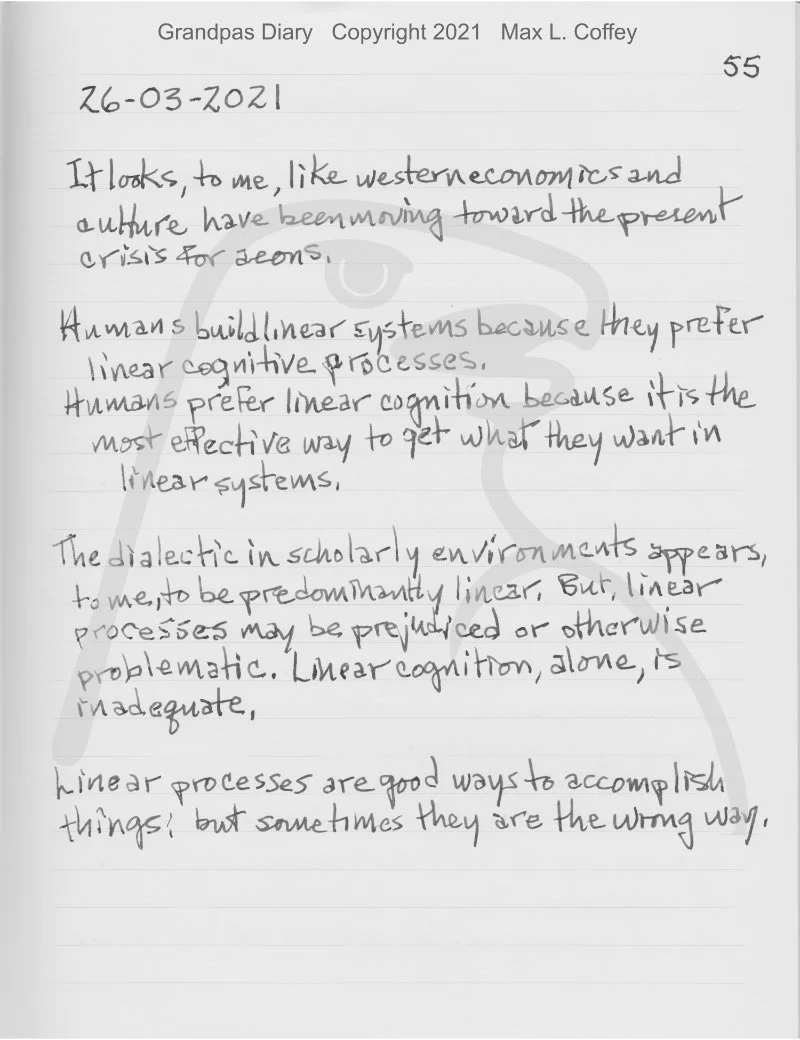 Grandpas Diary Copyright 2021 Max L. Coffey
55
26-03-2021
It looks, to me, like western economics and
culture have been moving toward the present
crisis for aeons.
Humans build linear systems because they prefer
linear cognitive processes.
Humans prefer linear cognition because it is the
most effective way to get what they want in
linear systems.
The dialectic in scholarly environments appears,
to me, to be predominantly linear. But, linear
processes may be prejudiced or otherwise
problematic. Linear cognition, alone, is
inadequate.
Linear processes are good ways to accomplish
things; but sometimes they are the wrong way.